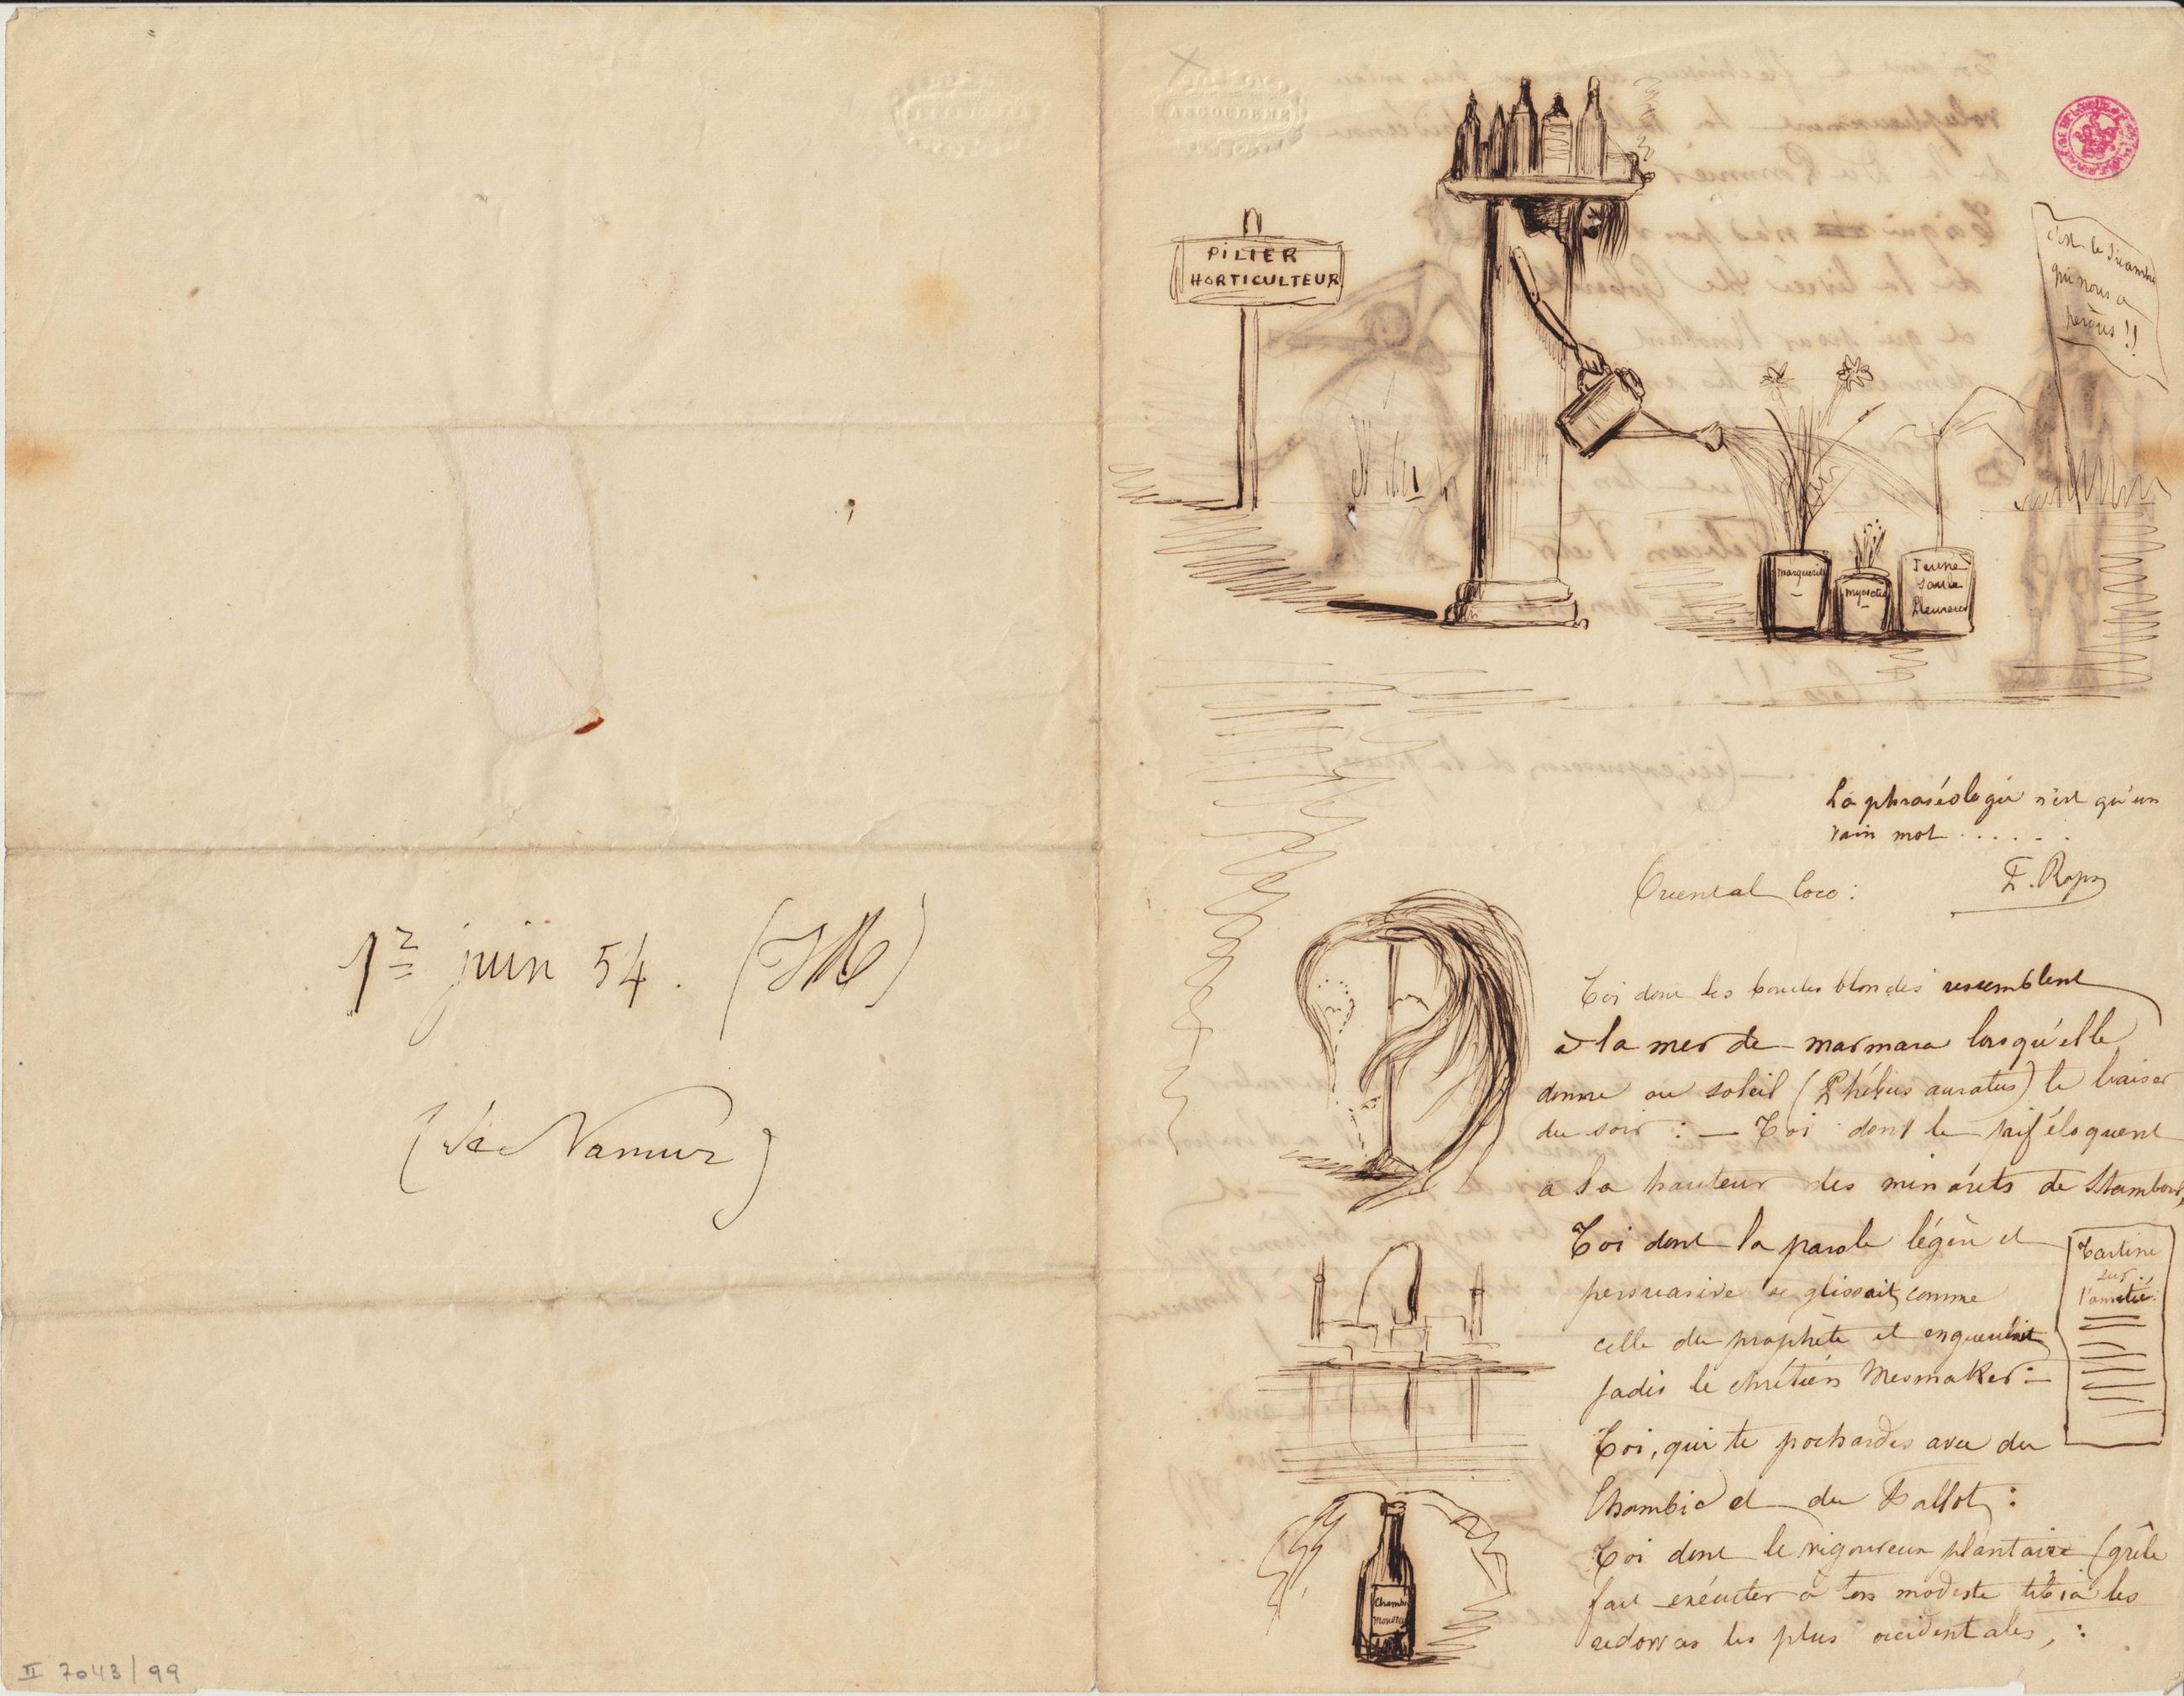 1er juin 54. (M)
(de Namur)
II 7043/99
ANGOULEME
PILIER
HORTICULTEUR
c'est le
qui nous a
perdus !!
marguerite
myosotis
Jeune
Saule
Pleureur
La phraséologie n'est qu'un
vain mot . . . . . .
F. Rops
Oriental Coco :
Toi dont les boucles blondes ressemblent
à la mer de marmara lorsqu'elle
donne au soleil (Phébus auratus) le baiser
du soir : — Toi dont le pif éloquent
a la hauteur des minarets de Stamboul,
Toi dont la parole légère et
persuasive se glissait comme
celle du prophète et engueulait
jadis le chrétien Mesmaker :
Tartine
sur
l'amitié.
Toi, qui te pochardes avec du
Chambic et du Ballot :
Toi dont le vigoureux plantaire (grêle
fait exécuter à ton modeste tibia les
redowas les plus occidentales, :
Chambic
mousseux